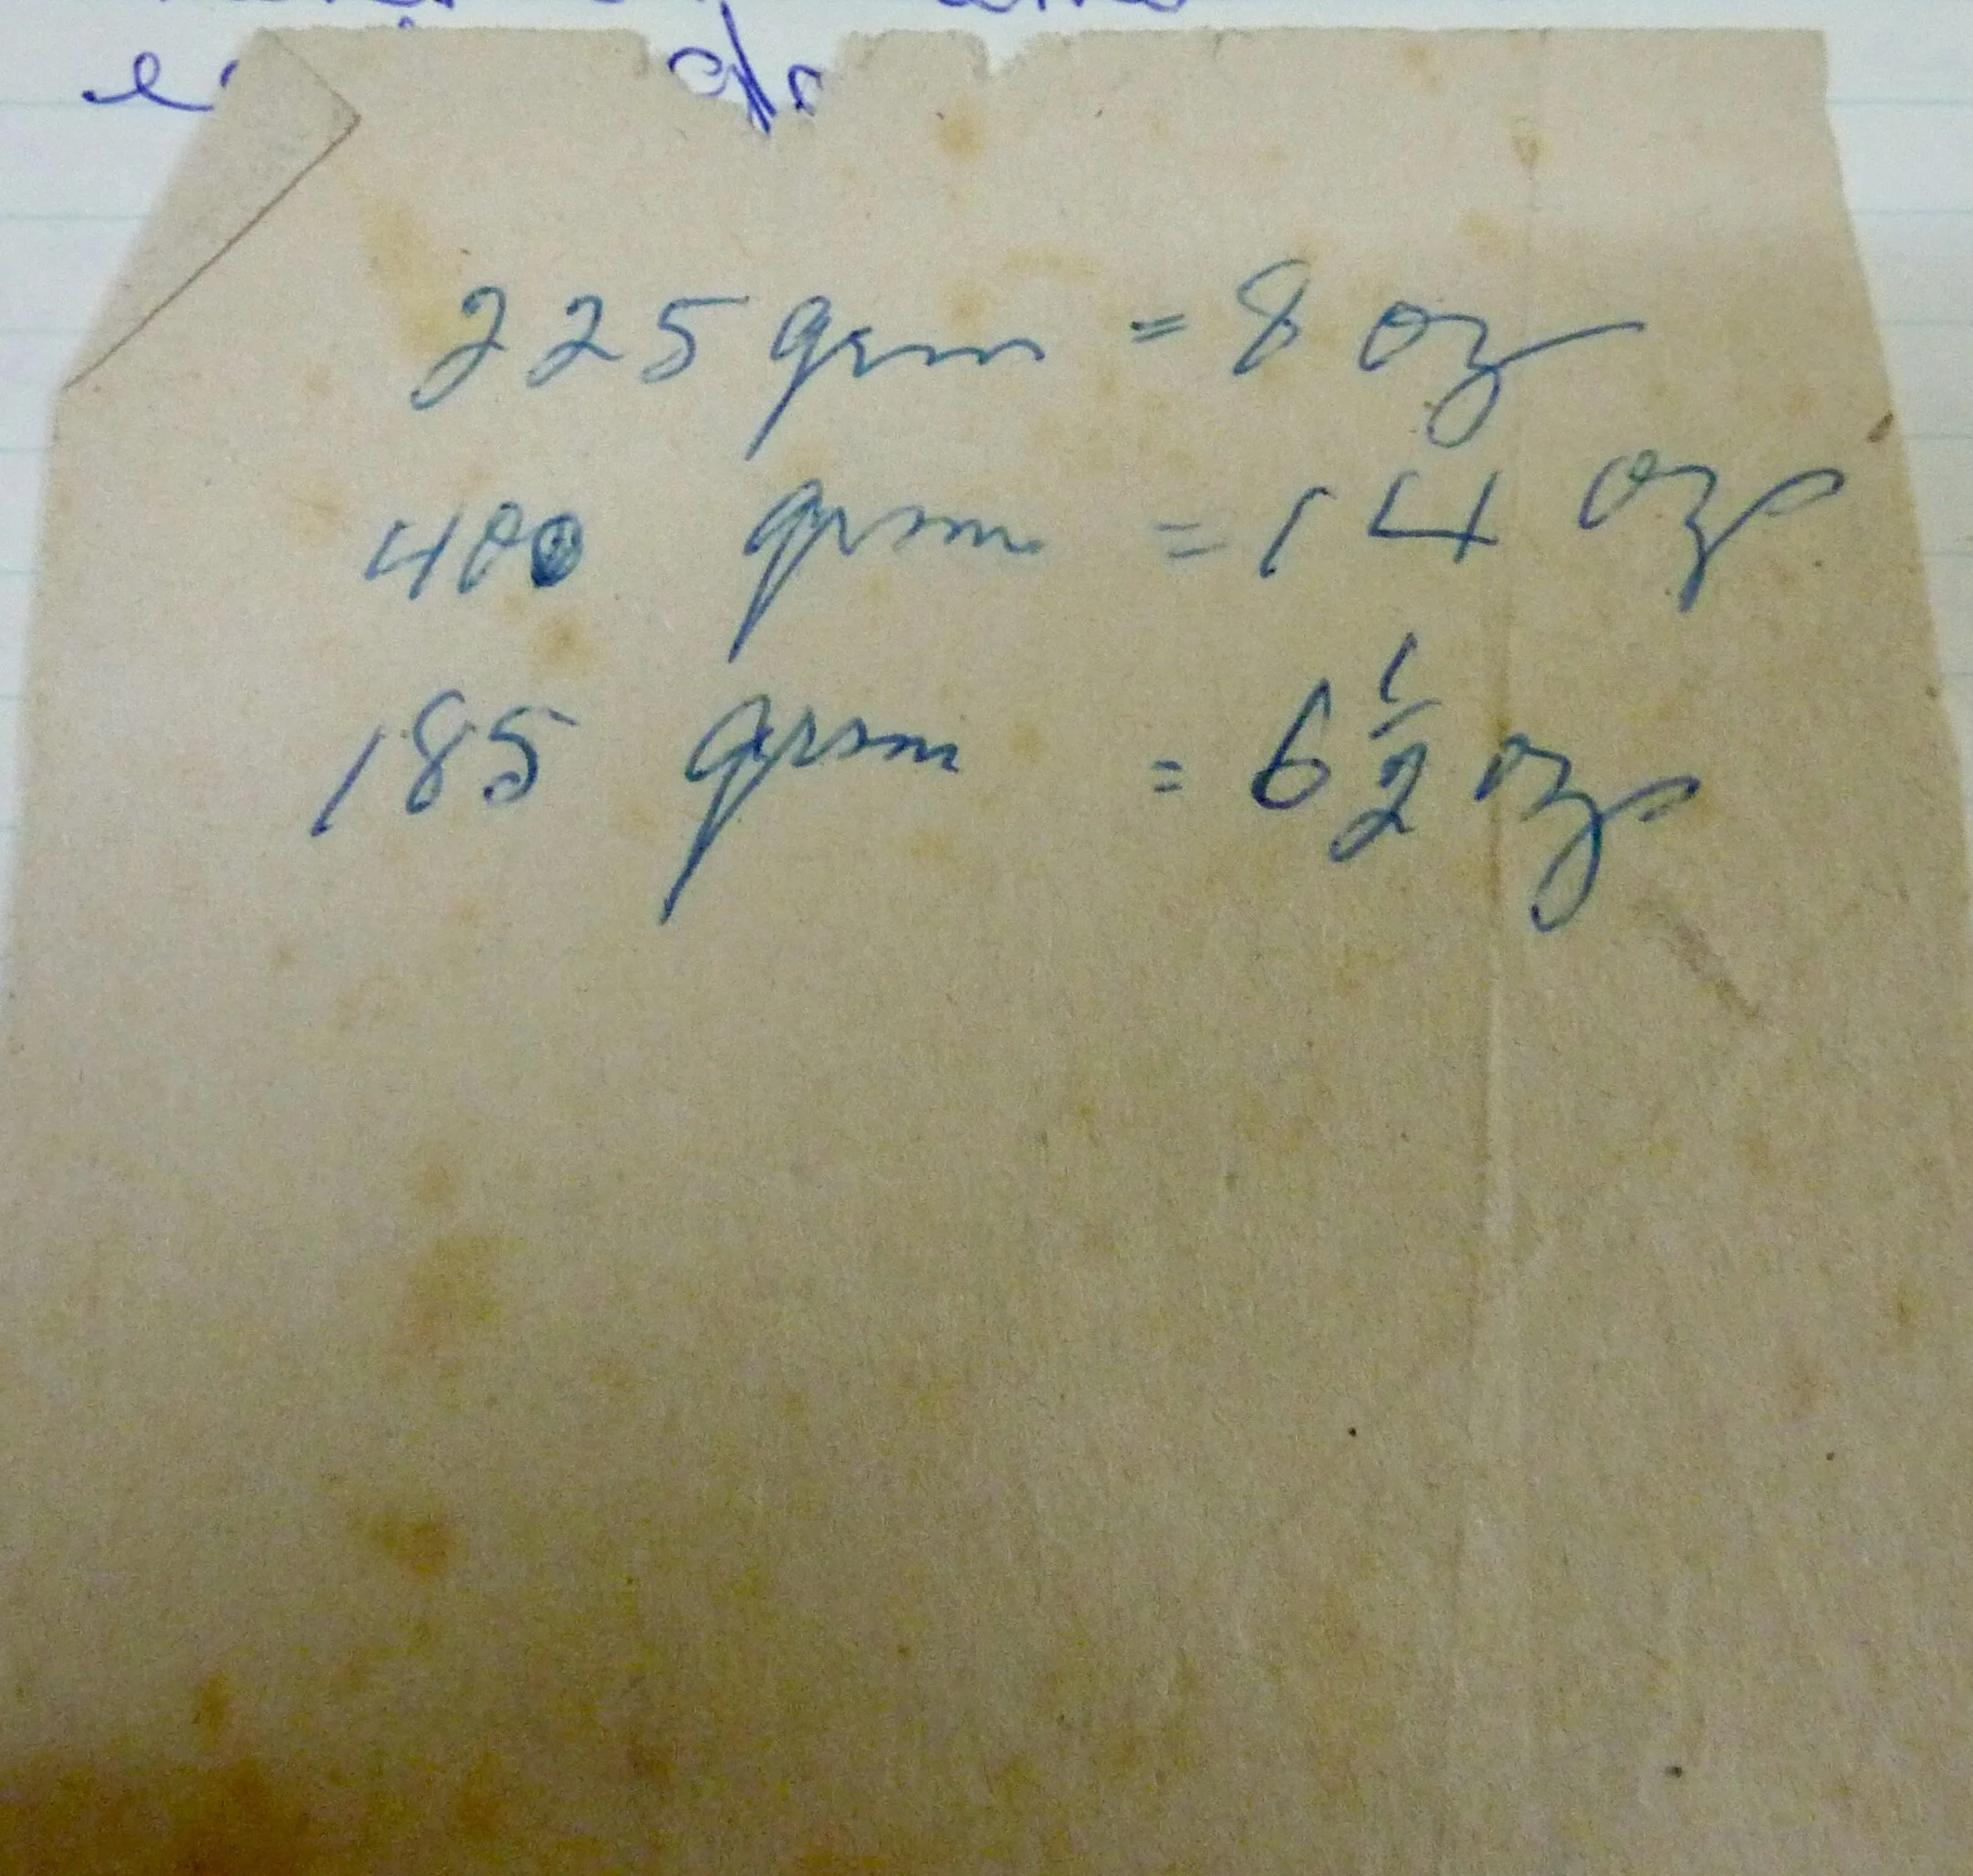 225 grm = 8 oz
400 grm = 14 oz
185 grm = 6 1/2 oz